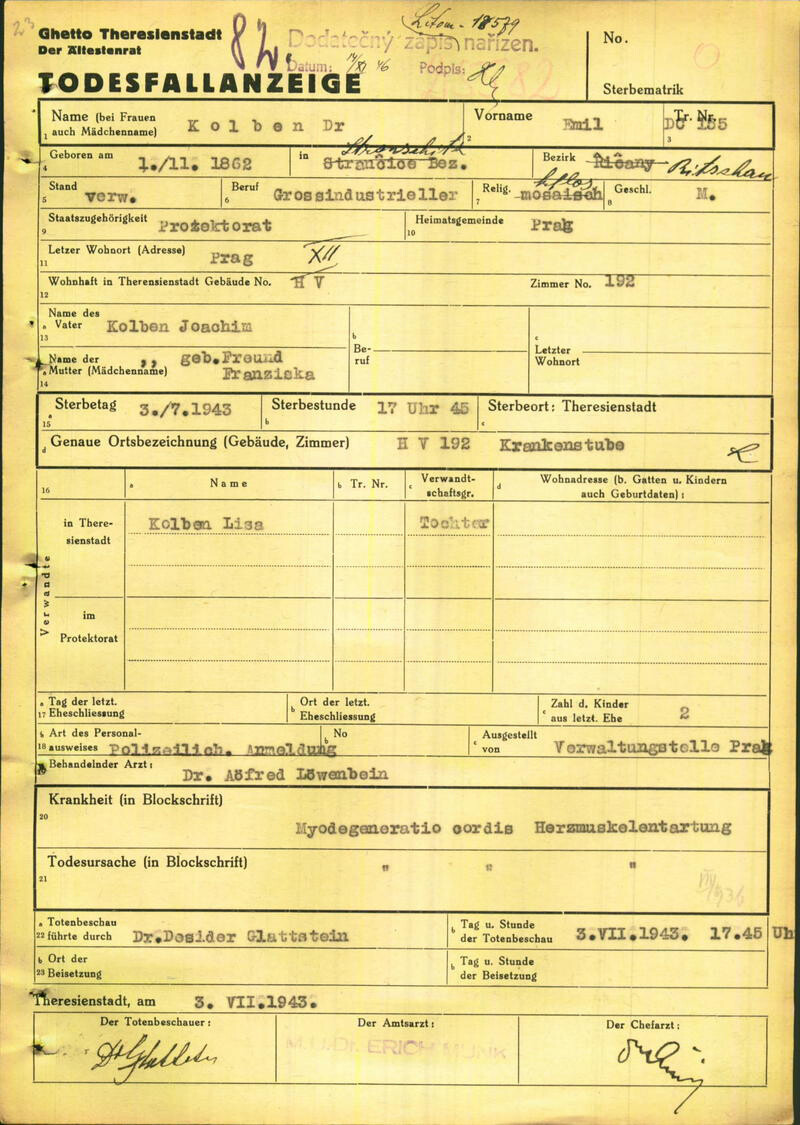 Ghetto Theresienstadt
Der Ältestenrat
TODESFALLANZEIGE
82.
Litom - 18579
Dodatečný zápis nařízen.
Datum: Podpis:
No.
Sterbematrik
Name (bei Frauen auch Mädchenname) Kolben Dr
1
Vorname Emil
2
Tr. Nr. 155
3
Geboren am 1./11. 1862
4
in Strančice Bez. Stranschitz
Bezirk Říčany Ritschan
Stand verw.
5
Beruf Grossindustrieller
6
Relig. mosaisch kflos
7
Geschl. M.
8
Staatszugehörigkeit Protektorat
9
Heimatsgemeinde Prag
10
Letzer Wohnort (Adresse) Prag XII
11
Wohnhaft in Therensienstadt Gebäude No. H V
12
Zimmer No. 192
Name des
a Vater Kolben Joachim
13
b Beruf
c Letzter Wohnort
Name der ,, geb.Freund
a Mutter (Mädchenname) Franziska
14
a Sterbetag 3./7.1943
15
b Sterbestunde 17 Uhr 45
c Sterbeort: Theresienstadt
d Genaue Ortsbezeichnung (Gebäude, Zimmer) H V 192 Krankenstube
16
a Name
b Tr. Nr.
c Verwandtschaftsgr.
d Wohnadresse (b. Gatten u. Kindern auch Geburtdaten):
Verwandte
in Theresienstadt
Kolben Lisa Tochter
im Protektorat
a Tag der letzt.
17 Eheschliessung
b Ort der letzt. Eheschliessung
c Zahl d. Kinder aus letzt. Ehe 2
a Art des Personal-
18 ausweises Polizeilich. Anmeldung
b No
c Ausgestellt von Verwaltungstelle Prag
Behandelnder Arzt: Dr. Aöfred Löwenbein
Krankheit (in Blockschrift)
20
Myodegeneratio cordis Herzmuskelentartung
Todesursache (in Blockschrift) " " "
21
a Totenbeschau
22 führte durch Dr.Desider Glattstein
b Tag u. Stunde der Totenbeschau 3.VII.1943. 17.45 Uh
b Ort der
23 Beisetzung
b Tag u. Stunde der Beisetzung
Theresienstadt, am 3. VII.1943.
Der Totenbeschauer:
Der Amtsarzt:
Der Chefarzt:
M.U.Dr. ERICH MUNK